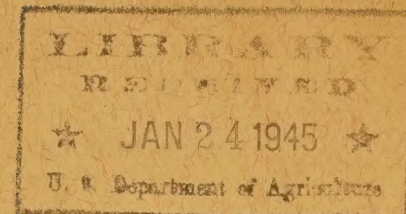 LIBRARY
RECEIVED
☆ JAN 24 1945 ☆
U. S. Department of Agriculture